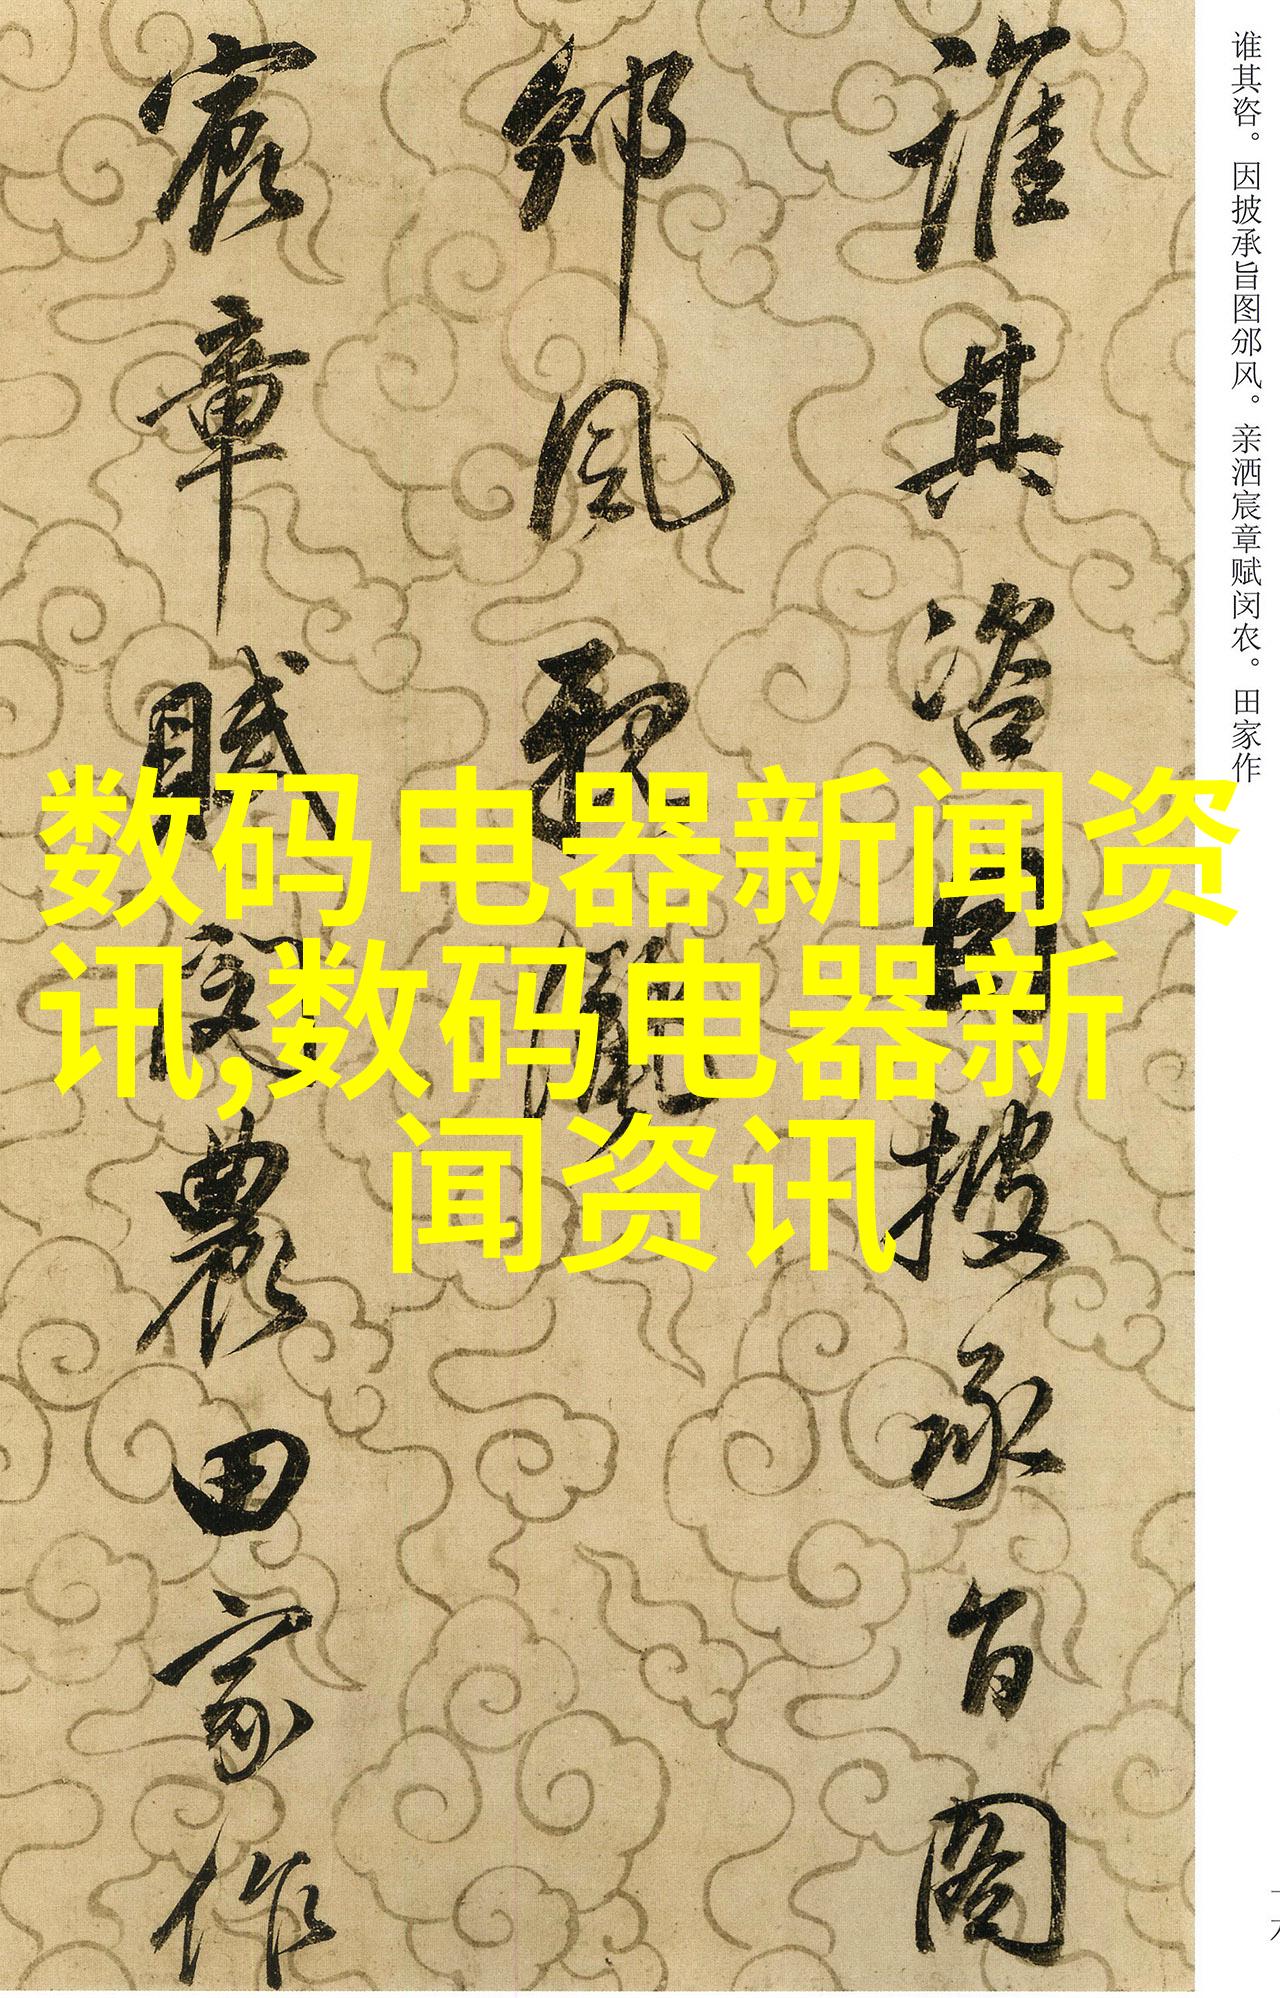 谁其咨。因披承旨图邠风。亲洒宸章赋闵农。田家作
誰其咨因披承旨圖
邠風親灑
宸章賦閔農田家作
数码电器新闻资
讯,数码电器新
闻资讯